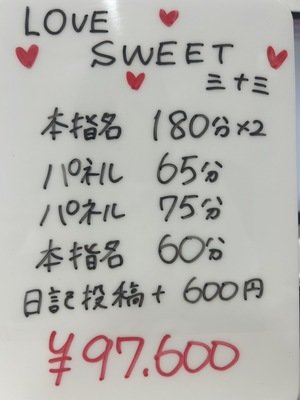 LOVE
SWEET
三十三
本指名 180分×2
パネル 65分
パネル 75分
本指名 60分
日記投稿+ 600円
¥97.600